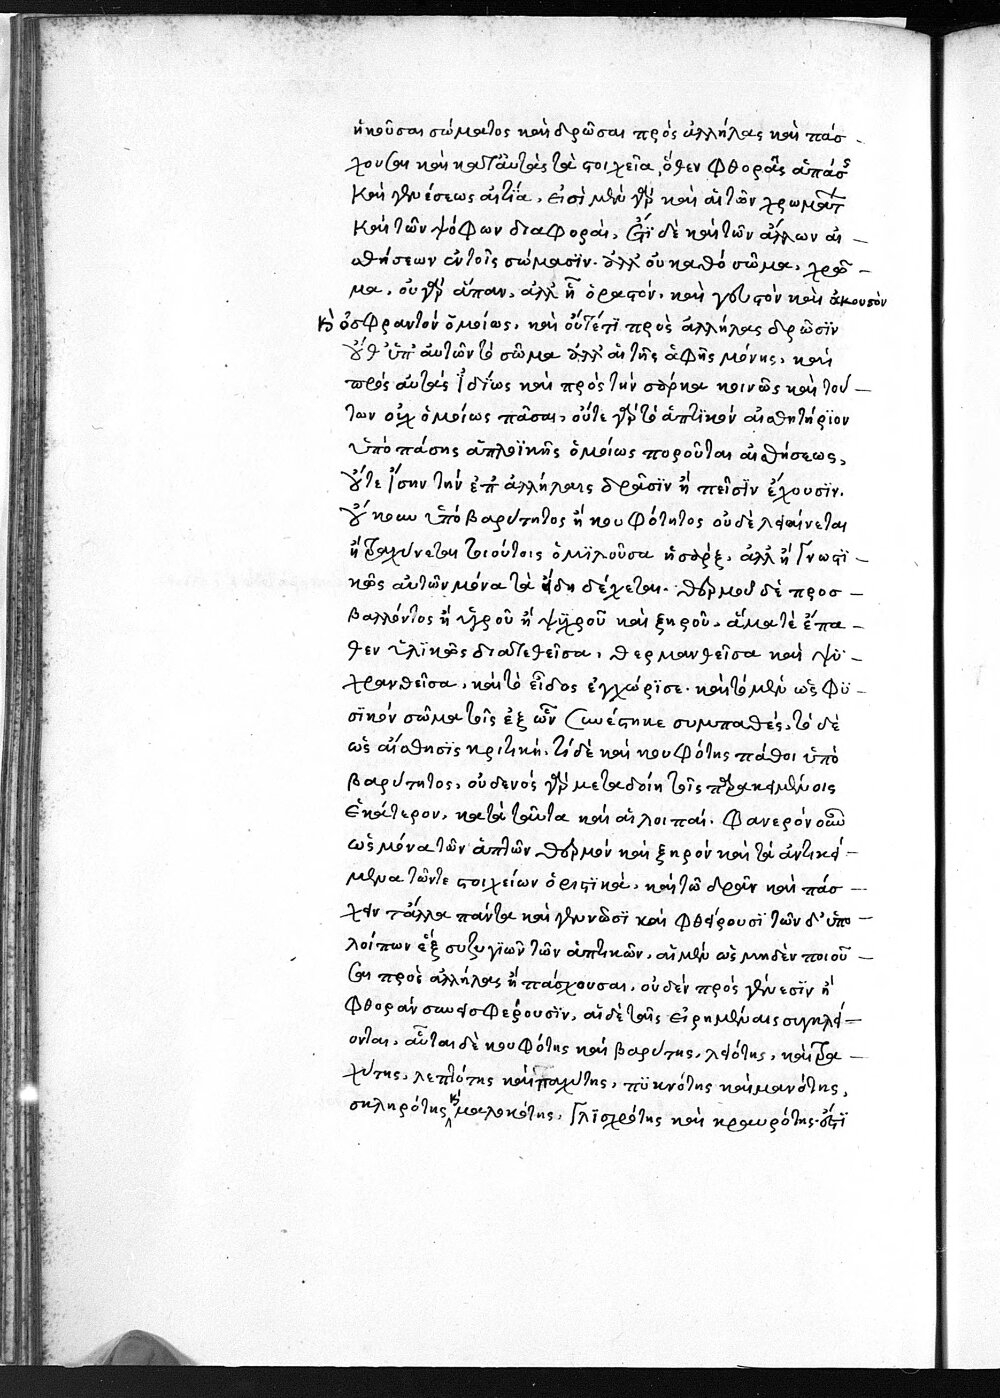 ἡκοῦσαι σώματος καὶ δρῶσαι πρὸς ἀλλήλας καὶ πάσ
χουσαι καὶ κατ' αὐτὰς τὰ στοιχεῖα, ὅθεν φθορᾶς ἁπάσ
καὶ γενέσεως αἰτία. εἰσὶ μὲν γὰρ καὶ αἱ τῶν χρωμάτ
καὶ τῶν ψόφων διαφοραὶ, ἔτι δὲ καὶ τῶν ἄλλων αἰ
σθήσεων ἐν τοῖς σώμασϊν. ἀλλ' οὐ καθὸ σῶμα, χρῶ
μα, οὐ γὰρ ἅπαν, ἀλλ' ᾗ ὁρατόν, καὶ γευστὸν καὶ ἀκουστὸν
καὶ ὀσφραντὸν ὁμοίως, καὶ οὔτέ τϊ πρὸς ἀλλήλας δρῶσϊν
οὔθ' ὑπ' αὐτῶν τὸ σῶμα ἀλλ' αἱ τῆς ἁφῆς μόνης, καὶ
πρὸς αὐτὰς ἰδίως καὶ πρὸς τὴν σάρκα κοινῶς καὶ τού
των οὐχ ὁμοίως πᾶσαι, οὔτε γὰρ τὸ ἁπτϊκὸν αἰσθητήρϊον
ὑπὸ πάσης ἁπλοϊκῆς ὁμοίως πυροῦται αἰσθήσεως,
οὔτε ἴσην τὴν ἐπ' ἀλλήλαις δρᾶσϊν ἢ πεῖσϊν ἔχουσϊν.
οὔκουν ὑπὸ βαρύτητος ἢ κουφότητος οὐδὲ λεαίνεται
ἢ τραχύνεται τοιούτοις ὁμϊλοῦσα ἡ σάρξ, ἀλλ' ἢ γνωστϊ
κῶς αὐτῶν μόνα τὰ εἴδη δέχεται. θερμοῦ δὲ προσ
βαλλόντος ἢ ὑγροῦ ἢ ψϋχροῦ καὶ ξηροῦ, ἅμα τὲ ἔπα
θεν ὑλϊκῶς διατεθεῖσα, θερμανθεῖσα καὶ ψϋ
χρανθεῖσα, καὶ τὸ εἶδος ἐγνώρϊσε. καὶ τὸ μὲν ὡς φϋ
σϊκὸν σῶμα τοῖς ἐξ ὧν συνέστηκε συμπαθὲς, τὸ δὲ
ὡς αἴσθησϊς κριτική. τί δὲ καὶ κουφότης πάθοι ὑπὸ
βαρύτητος, οὐδενὸς γὰρ μεταδοίη τοῖς παρακειμένοις
ἑκάτερον, κατὰ ταῦτα καὶ αἱ λοιπαί. φανερὸν οὖν
ὡς μόνα τῶν ἁπτῶν θερμὸν καὶ ξηρὸν καὶ τὰ ἀντικεί
μενα τῶντε στοιχείων ὁριστϊκὰ, καὶ τῶ δρᾶν καὶ πάσ
χειν τἄλλα πάντα καὶ γεννῶσϊ καὶ φθείρουσϊ τῶν δ' ὑπο
λοίπων ἓξ συζυγϊῶν τῶν ἁπτικῶν, αἱ μὲν ὡς μηδὲν ποιοῦ
σαι πρὸς ἀλλήλας ἢ πάσχουσαι, οὐδὲν πρὸς γένεσϊν ἢ
φθορὰν συνεισφέρουσϊν, αἱ δὲ ταῖς εἰρημέναις συγκλεί
ονται, αὗται δὲ κουφότης καὶ βαρύτης, λειότης, καὶ τρα
χύτης, λεπτότης καὶ παχύτης, πϋκνότης καὶ μανότης,
σκληρότης καὶ μαλακότης, γλϊσχρότης καὶ κραυρότης. ὅτϊ